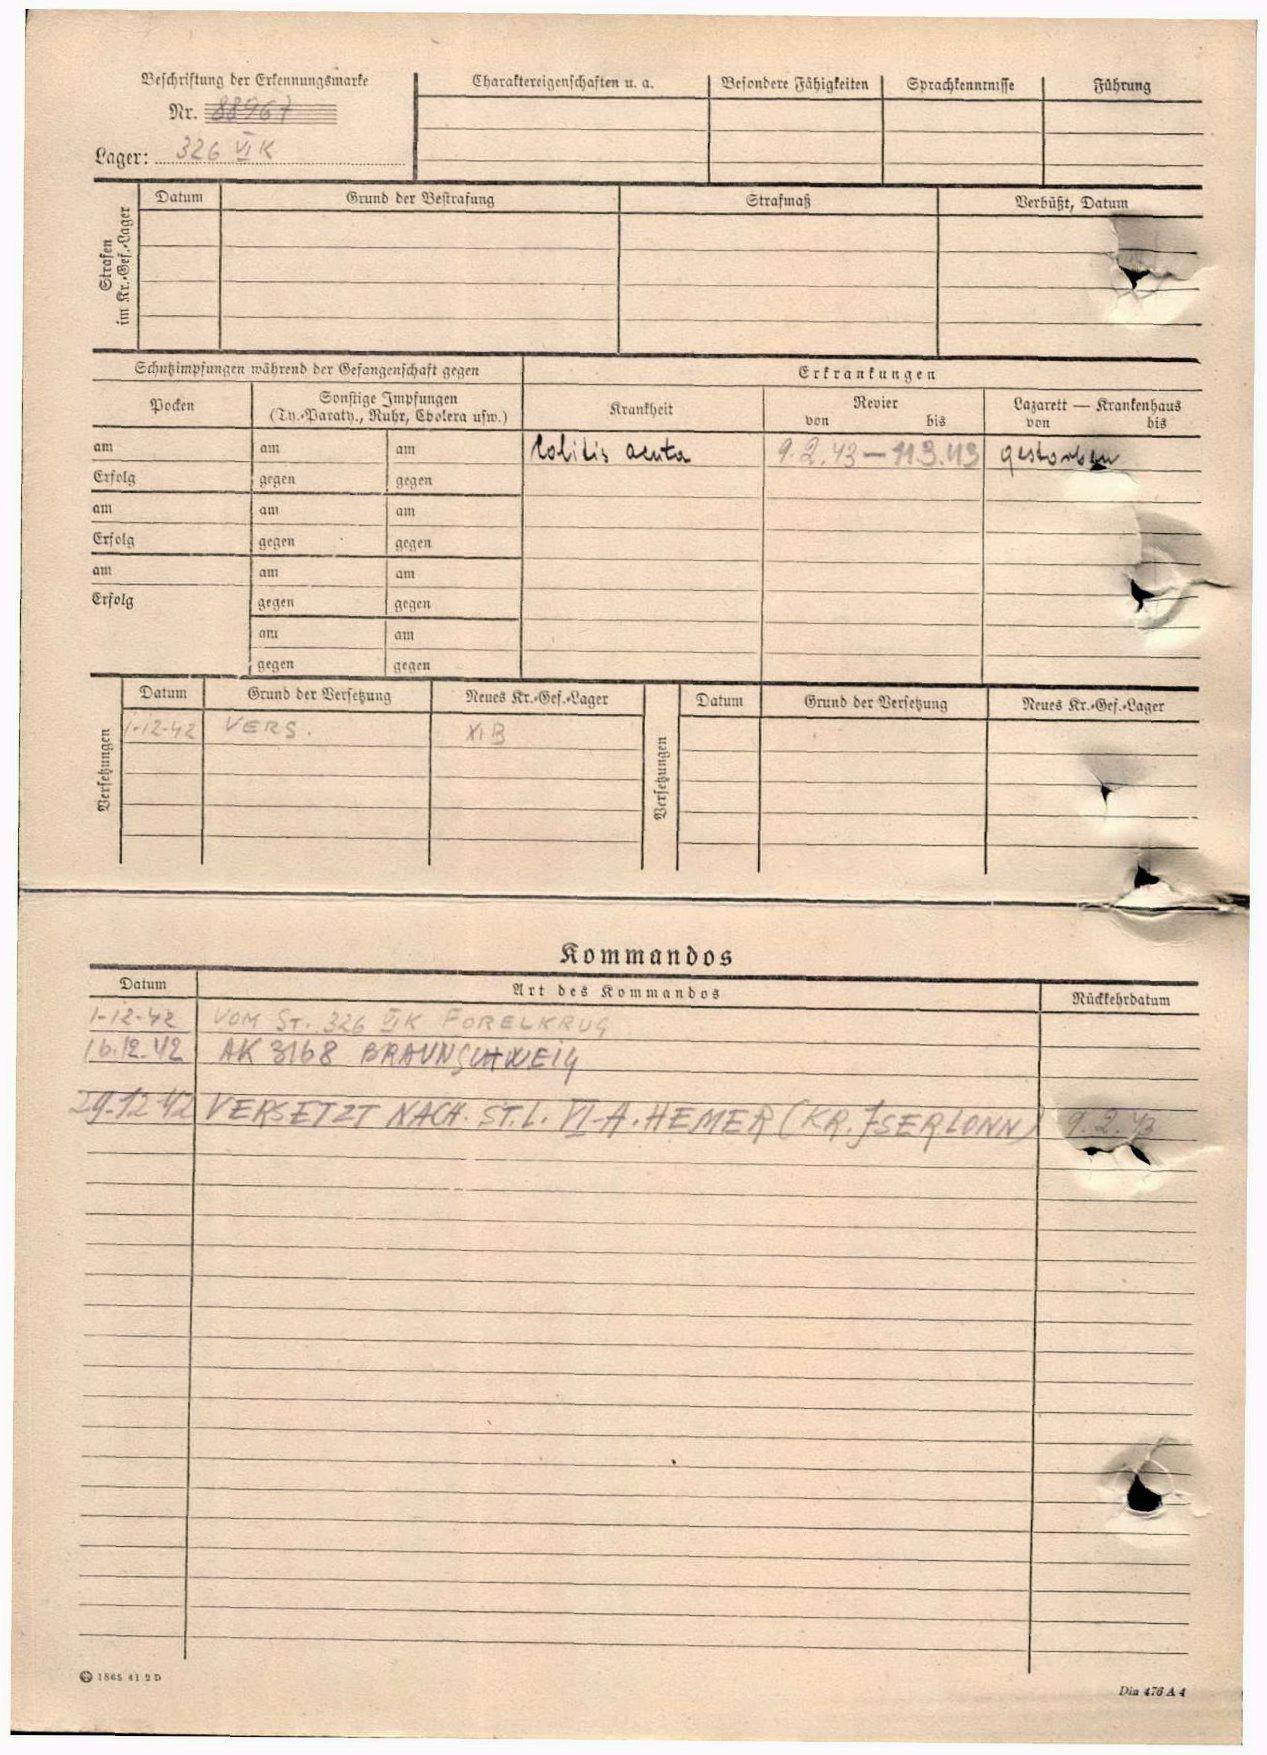 Beschriftung der Erkennungsmarke
Nr. 88967
Lager: 326 VI K
Charaktereigenschaften u. a.
Besondere Fähigkeiten
Sprachkenntnisse
Führung
Strafen
im Kr.-Gef.-Lager
Datum
Grund der Bestrafung
Strafmaß
Verbüßt, Datum
Schutzimpfungen während der Gefangenschaft gegen
Erkrankungen
Pocken
Sonstige Impfungen
(Ty.-Paraty., Ruhr, Cholera usw.)
Krankheit
Revier
von bis
Lazarett — Krankenhaus
von bis
am am am Colitis acuta 9.2.43 — 11.3.43 gestorben
Erfolg gegen gegen
am am am
Erfolg gegen gegen
am am am
Erfolg gegen gegen
am am
gegen gegen
Versetzungen
Datum Grund der Versetzung Neues Kr.-Gef.-Lager
1-12-42 VERS. XI B
Versetzungen
Datum Grund der Versetzung Neues Kr.-Gef.-Lager
Kommandos
Datum Art des Kommandos Rückkehrdatum
1-12-42 VOM ST. 326 VI K FORELKRUG
16.12.42 AK 3168 BRAUNSCHWEIG
29-12-42 VERSETZT NACH. ST.L. VI-A. HEMER (KR. JSERLONN) 9.2.43
1865 41 2 D
Din 476 A 4